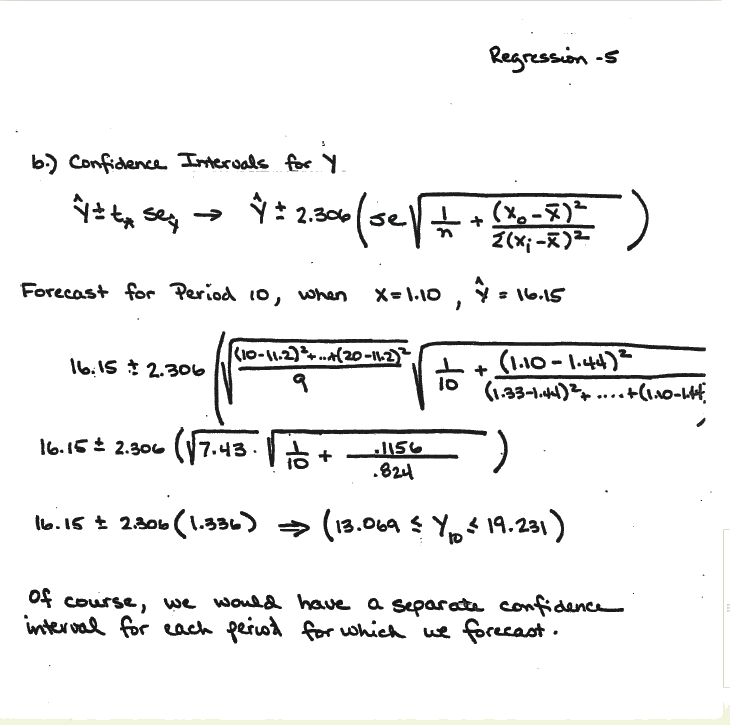 Regression -5
b.) Confidence Intervals for Y
Ŷ ± tα seŷ → Ŷ ± 2.306 (se √(1/n + (x₀-x̄)²/Σ(xᵢ-x̄)²))
Forecast for Period 10, when X=1.10, Ŷ = 16.15
16.15 ± 2.306 (√((10-11.2)²+...+(20-11.2)²/9) √(1/10 + (1.10-1.44)²/(1.33-1.44)²+....+(1.10-1.44)²
16.15 ± 2.306 (√7.43 · √(1/10 + .1156/.824))
16.15 ± 2.306 (1.336) ⇒ (13.069 ≤ Y₁₀ ≤ 19.231)
Of course, we would have a separate confidence
interval for each period for which we forecast.